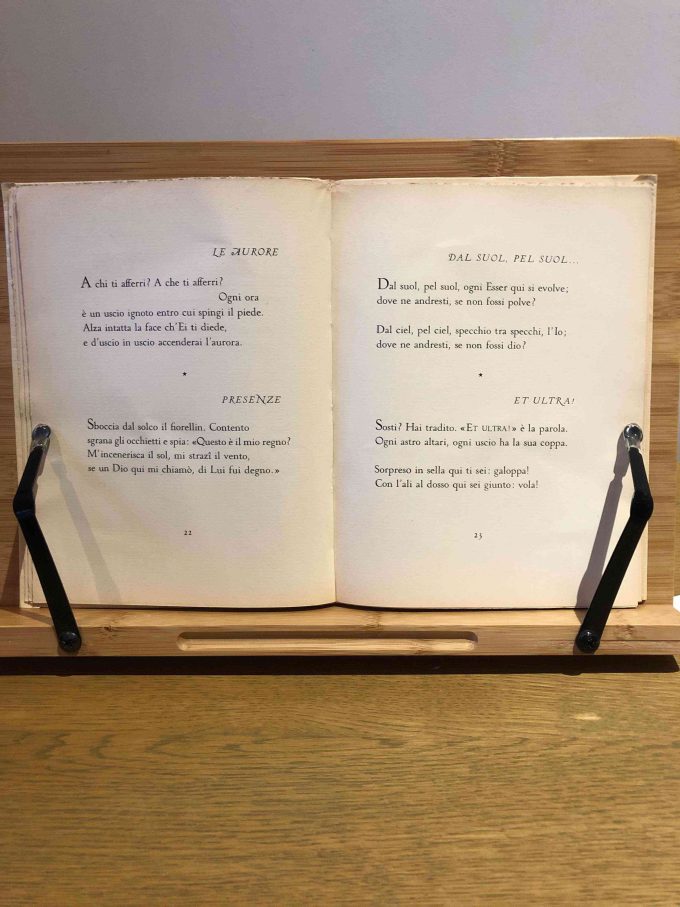 LE AURORE
A chi ti afferri? A che ti afferri?
Ogni ora
è un uscio ignoto entro cui spingi il piede.
Alza intatta la face ch'Ei ti diede,
e d'uscio in uscio accenderai l'aurora.
★
PRESENZE
Sboccia dal solco il fiorellin. Contento
sgrana gli occhietti e spia: «Questo è il mio regno?
M'incenerisca il sol, mi strazî il vento,
se un Dio qui mi chiamò, di Lui fui degno.»
22
DAL SUOL, PEL SUOL...
Dal suol, pel suol, ogni Esser qui si evolve;
dove ne andresti, se non fossi polve?
Dal ciel, pel ciel, specchio tra specchi, l'Io;
dove ne andresti, se non fossi dio?
★
ET ULTRA!
Sosti? Hai tradito. «ET ULTRA!» è la parola.
Ogni astro altari, ogni uscio ha la sua coppa.
Sorpreso in sella qui ti sei: galoppa!
Con l'ali al dosso qui sei giunto: vola!
23